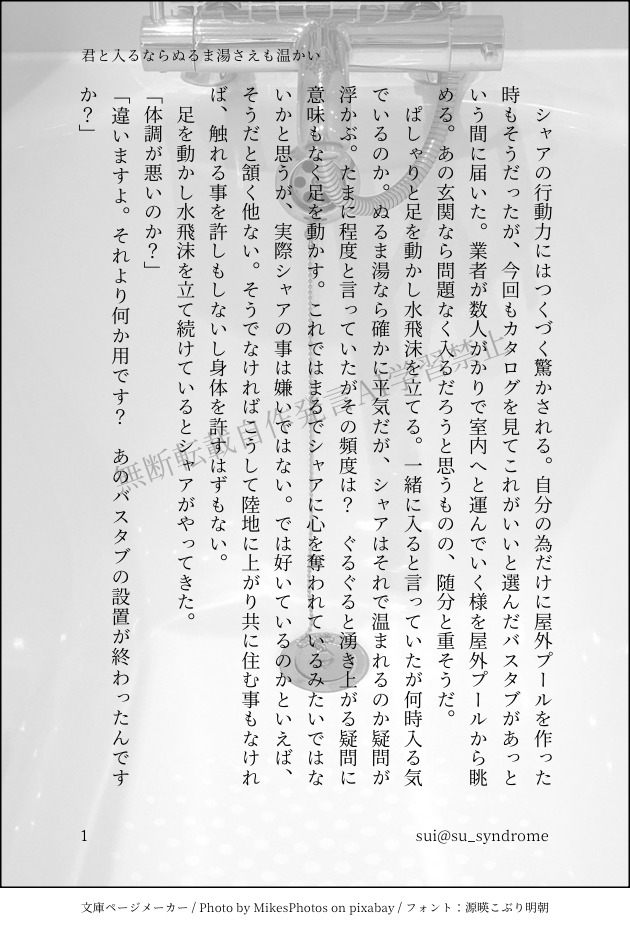 君と入るならぬるま湯さえも温かい
　シャアの行動力にはつくづく驚かされる。自分の為だけに屋外プールを作った
時もそうだったが、今回もカタログを見てこれがいいと選んだバスタブがあっと
いう間に届いた。業者が数人がかりで室内へと運んでいく様を屋外プールから眺
める。あの玄関なら問題なく入るだろうと思うものの、随分と重そうだ。
　ぱしゃりと足を動かし水飛沫を立てる。一緒に入ると言っていたが何時入る気
でいるのか。ぬるま湯なら確かに平気だが、シャアはそれで温まれるのか疑問が
浮かぶ。たまに程度と言っていたがその頻度は？　ぐるぐると湧き上がる疑問に
意味もなく足を動かす。これではまるでシャアに心を奪われているみたいではな
いかと思うが、実際シャアの事は嫌いではない。では好いているのかといえば、
そうだと頷く他ない。そうでなければこうして陸地に上がり共に住む事もなけれ
ば、触れる事を許しもしないし身体を許すはずもない。
　足を動かし水飛沫を立て続けているとシャアがやってきた。
「体調が悪いのか？」
「違いますよ。それより何か用です？　あのバスタブの設置が終わったんです
か？」
無断転載自作発言AI学習禁止
1
sui@su_syndrome
文庫ページメーカー / Photo by MikesPhotos on pixabay / フォント：源暎こぶり明朝